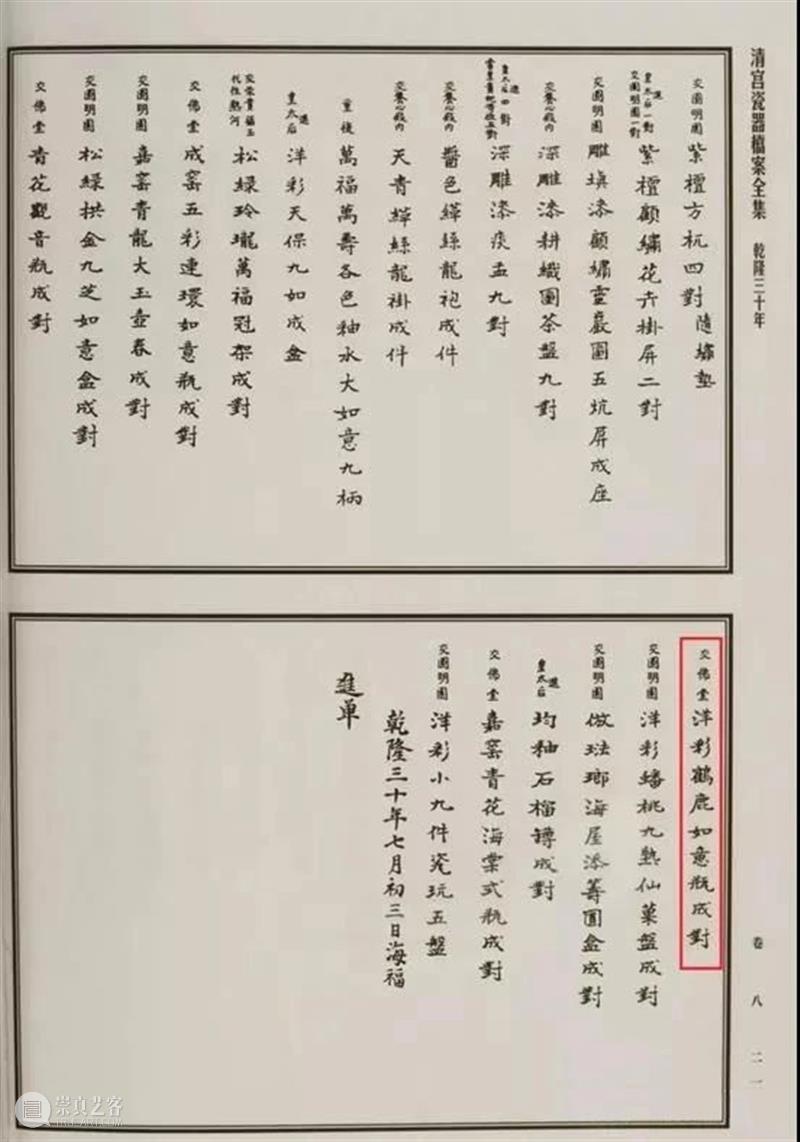 清宮瓷器檔案全集 乾隆三十年
交圓明園 紫檀方杌四對 隨墊
皇太后一對 進 交圓明園一對 紫檀顧繡花卉掛屏二對
交圓明園 雕填漆顧繡靈巖圖五坑屏成座
交養心殿內 深雕漆耕織圖茶盤九對
皇太后四對 進 深雕漆痰盂九對
交養心殿內 醬色緙絲龍袍成件
交養心殿內 天青緙絲龍褂成件
萬福萬壽各色釉水大如意九柄
皇太后 進 洋彩天保九如成盒
代往熱河 松綠玲瓏萬福冠架成對
交佛堂 成窰五彩連環如意瓶成對
交圓明園 嘉窰青龍大玉壺春成對
交圓明園 松綠拱金九芝如意盒成對
交佛堂 青花觀音瓶成對
交佛堂 洋彩鶴鹿如意瓶成對
交圓明園 洋彩蟠桃九熟仙菓盤成對
交圓明園 倣琺瑯海屋添籌圓盒成對
皇太后 進 均釉石榴罇成對
交佛堂 嘉窰青花海棠式瓶成對
交圓明園 洋彩小九件瓷玩五盤
乾隆三十年七月初三日海福
進單
卷八 二一
崇真艺客